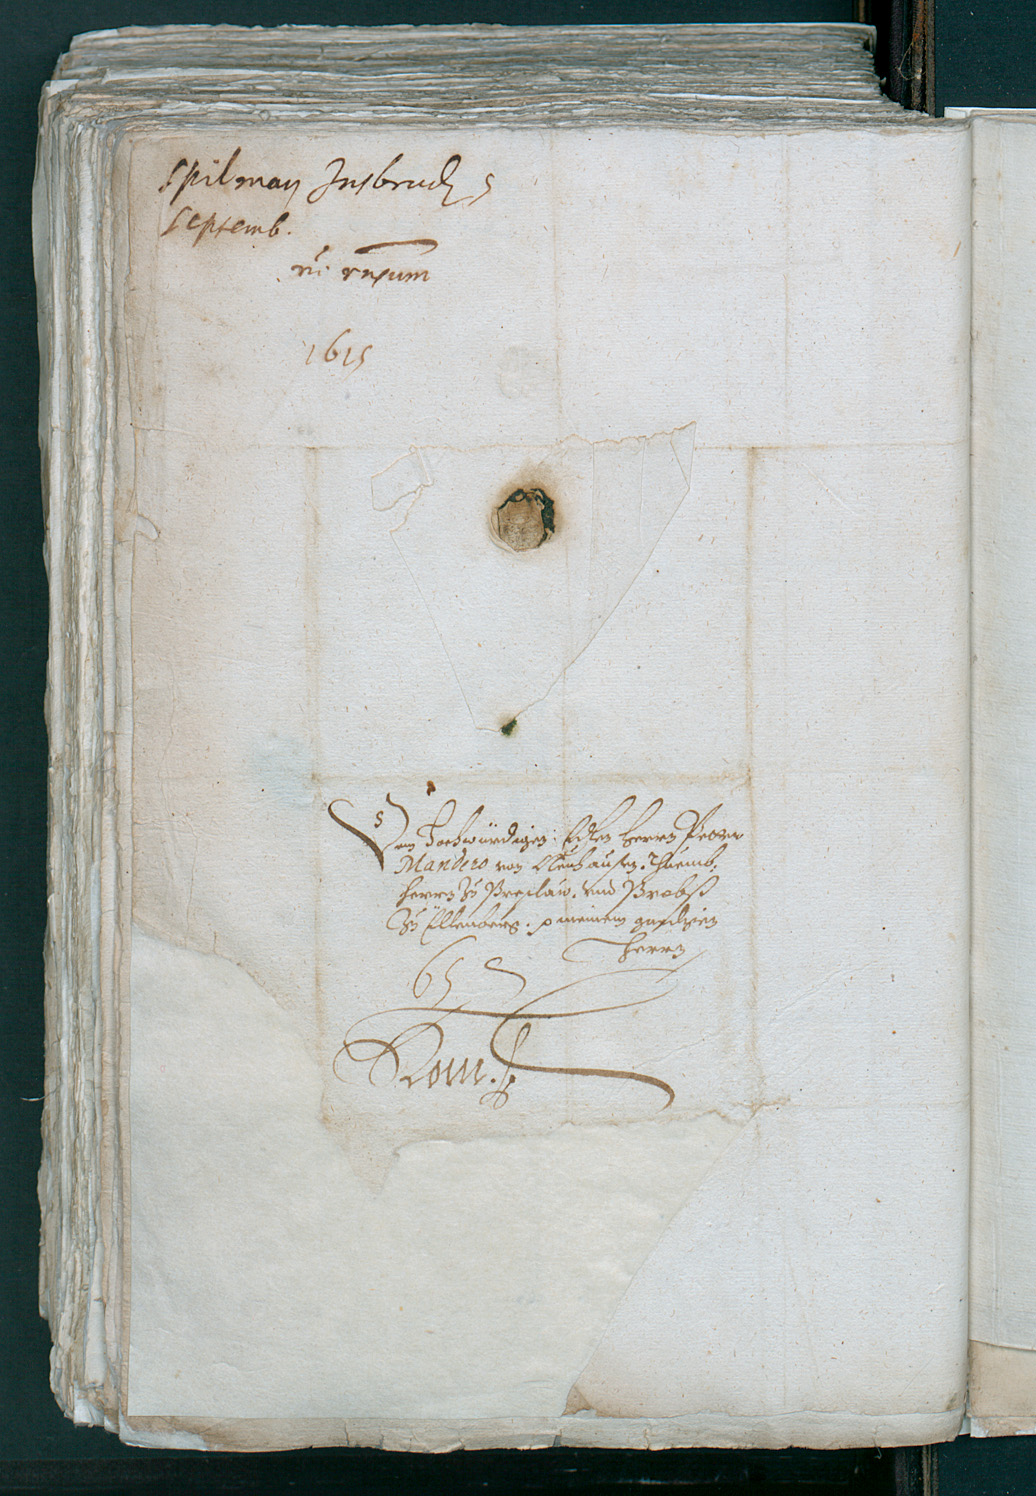 Spilman Insbruck 5
Septemb.
rñ: respum
1615
Dem Hochwürdigen: Edlen Herrn Petero
Mandero von Neuhausen. Thuemb,
herrn Zu Preslaw. vnd Probst
Zu Ellenberg. meinem gnedigen
Herrn
Rom.